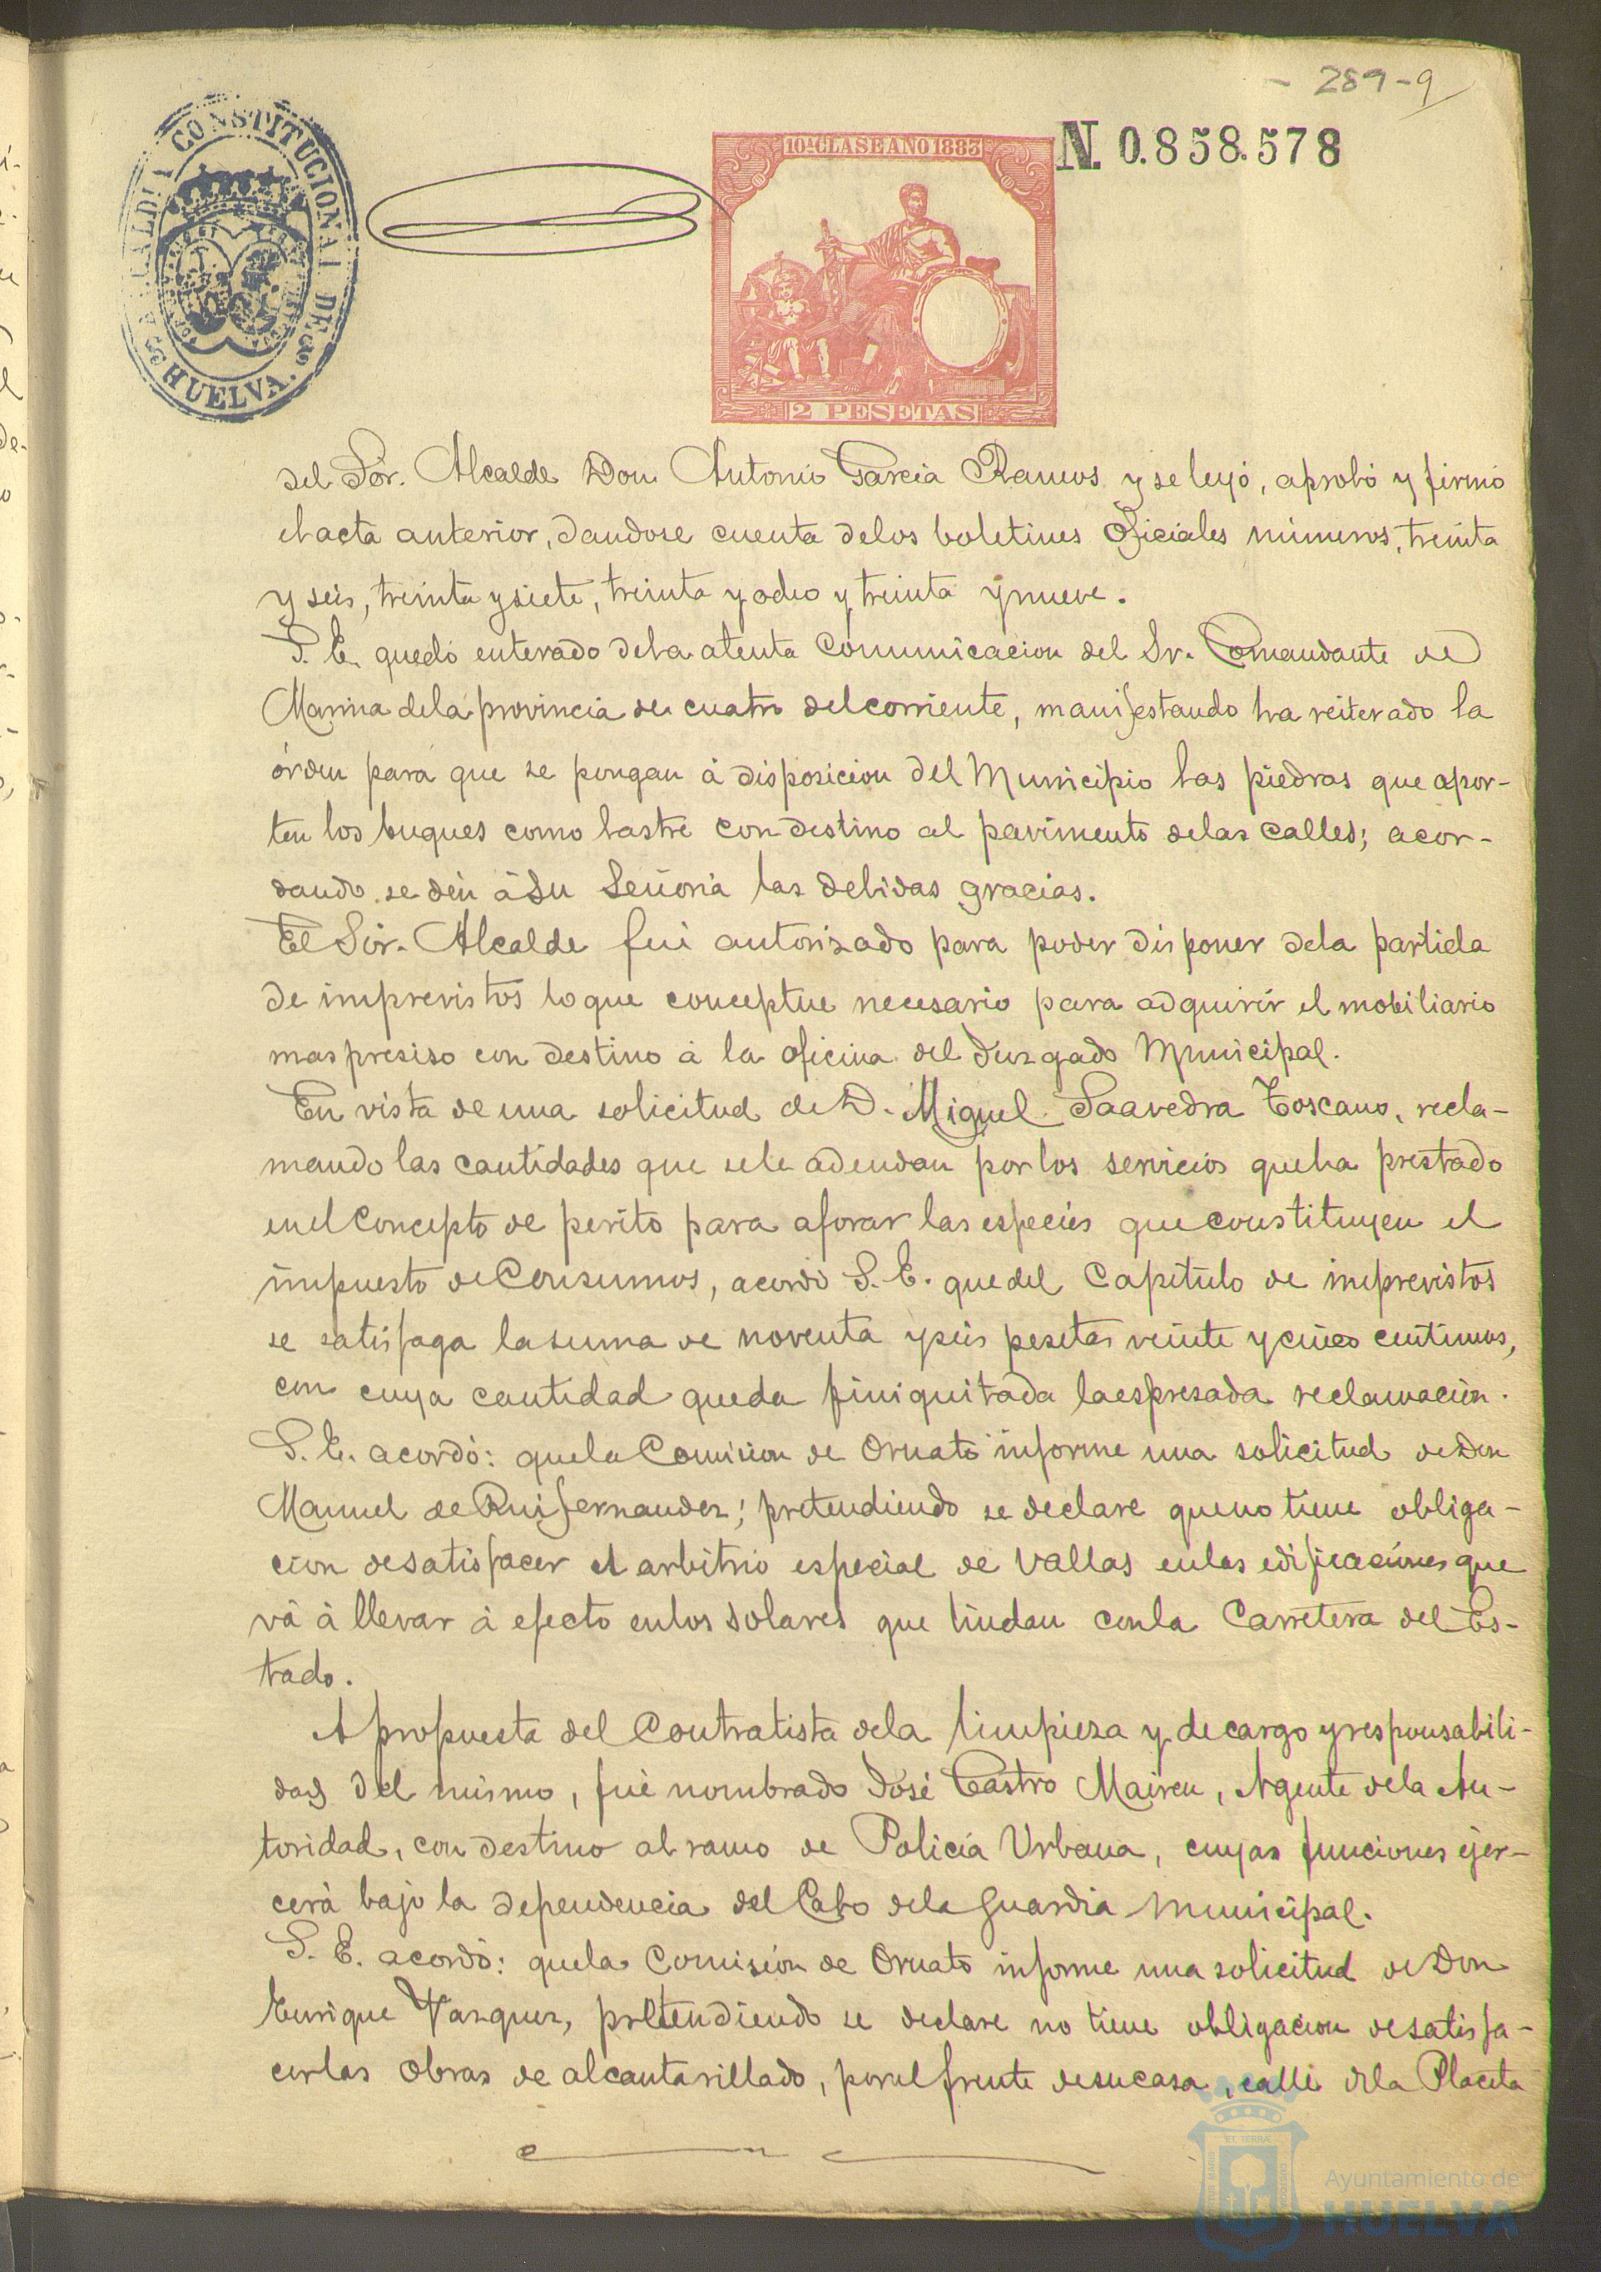 - 289 - 9
ALCALDIA CONSTITUCIONAL DE HUELVA.
10ª CLASE AÑO 1883
N. 0.858.578
2 PESETAS
del Sór. Alcalde Don Antonio Garcia Ramos y se leyó, aprobó y firmó
el acta anterior, dandose cuenta de los boletines Oficiales números, treinta
y seis, treinta y siete, treinta y ocho y treinta y nueve.
S. E. quedó enterado de la atenta Comunicacion del Sr. Comandante de
Marina de la provincia de cuatro del corriente, manifestando ha reiterado la
órden para que se pongan á disposicion del Municipio las piedras que apor-
ten los buques como lastre con destino al pavimento de las calles; acor-
dando se dén á Su Señoria las debidas gracias.
El Sór. Alcalde fué autorizado para poder disponer de la partida
de imprevistos lo que conceptue necesario para adquirir el mobiliario
mas presiso con destino á la oficina del Juzgado Municipal.
En vista de una solicitud de D. Miguel Saavedra Toscano, recla-
mando las cantidades que se le adeudan por los servicios que ha prestado
en el Concepto de perito para aforar las especies que constituyen el
impuesto de Consumos, acordó S. E. que del Capitulo de imprevistos
se satisfaga la suma de noventa y seis pesetas veinte y cinco centimos,
con cuya cantidad queda finiquitada la espresada reclamacion.
S. E. acordó: que la Comision de Ornato informe una solicitud de Don
Manuel de Ruifernandez; pretendiendo se declare que no tiene obliga-
cion de satisfacer el arbitrio especial de vallas en las edificaciones que
vá á llevar á efecto en los solares que lindan con la Carretera del Es-
tado.
A propuesta del Contratista de la limpieza y de cargo y responsabili-
dad del mismo, fué nombrado José Castro Maireu, Agente de la Au-
toridad, con destino al ramo de Policia Urbana, cuyas funciones ejer-
cerá bajo la dependencia del Cabo de la Guardia Municipal.
S. E. acordó: que la Comisión de Ornato informe una solicitud de Don
Enrique Vazquez, pretendiendo se declare no tiene obligacion de satisfa-
cer las obras de alcantarillado, por el frente de su casa, calle de la Placeta
Ayuntamiento de
HUELVA